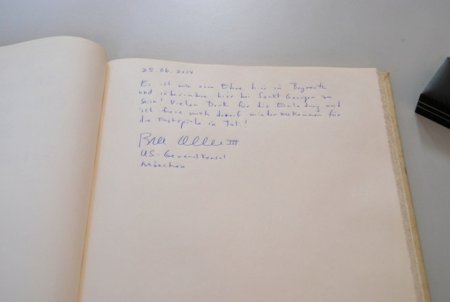 25.06.2014
Es ist mir eine Ehre hier in Bayreuth
und insbesondere hier bei Sankt Georgen zu
sein! Vielen Dank für die Einladung und
ich freue mich darauf wiederzukommen für
die Festspiele in Juli!
Bill III
US-Generalkonsul
München